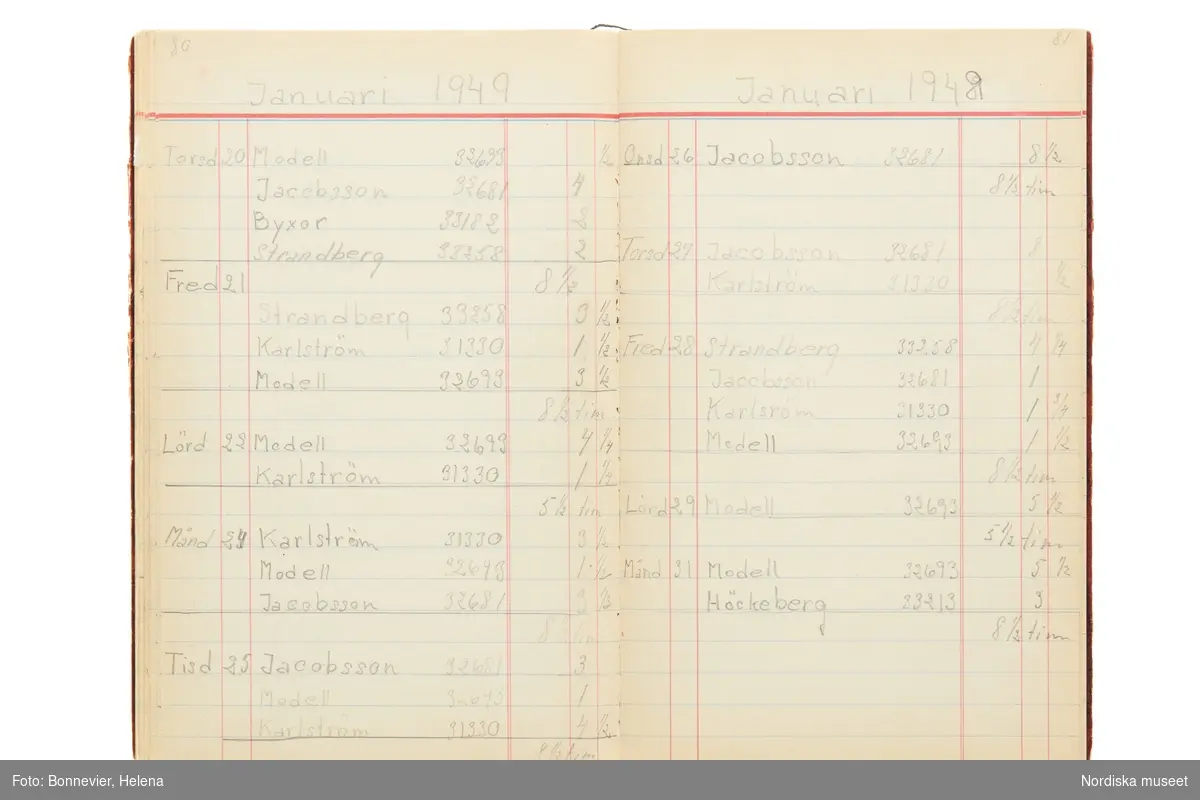 80
Januari 1949
Torsd 20 Modell 32693 1/2
Jacobsson 32681 4
Byxor 33182 2
Strandberg 33258 2
Fred 21 8 1/2
Strandberg 33258 3 1/2
Karlström 31330 1 1/2
Modell 32693 3 1/2
8 1/2 tim
Lörd 22 Modell 32693 4 1/4
Karlström 31330 1 1/4
5 1/2 tim
Månd 24 Karlström 31330 3 1/2
Modell 32693 1 1/2
Jacobsson 32681 3 1/2
8 1/2 tim
Tisd 25 Jacobsson 32681 3
Modell 32693 1
Karlström 31330 4 1/2
8 1/2 tim
81
Januari 1949
Onsd 26 Jacobsson 32681 8 1/2
8 1/2 tim
Torsd 27 Jacobsson 32681 8
Karlström 31330 1/2
8 1/2 tim
Fred 28 Strandberg 33258 4 1/4
Jacobsson 32681 1
Karlsröm 31330 1 3/4
Modell 32693 1 1/2
8 1/2 tim
Lörd 29 Modell 32693 5 1/2
5 1/2 tim
Månd 31 Modell 32693 5 1/2
Höckeberg 23213 3
8 1/2 tim
Foto: Bonnevier, Helena
Nordiska museet